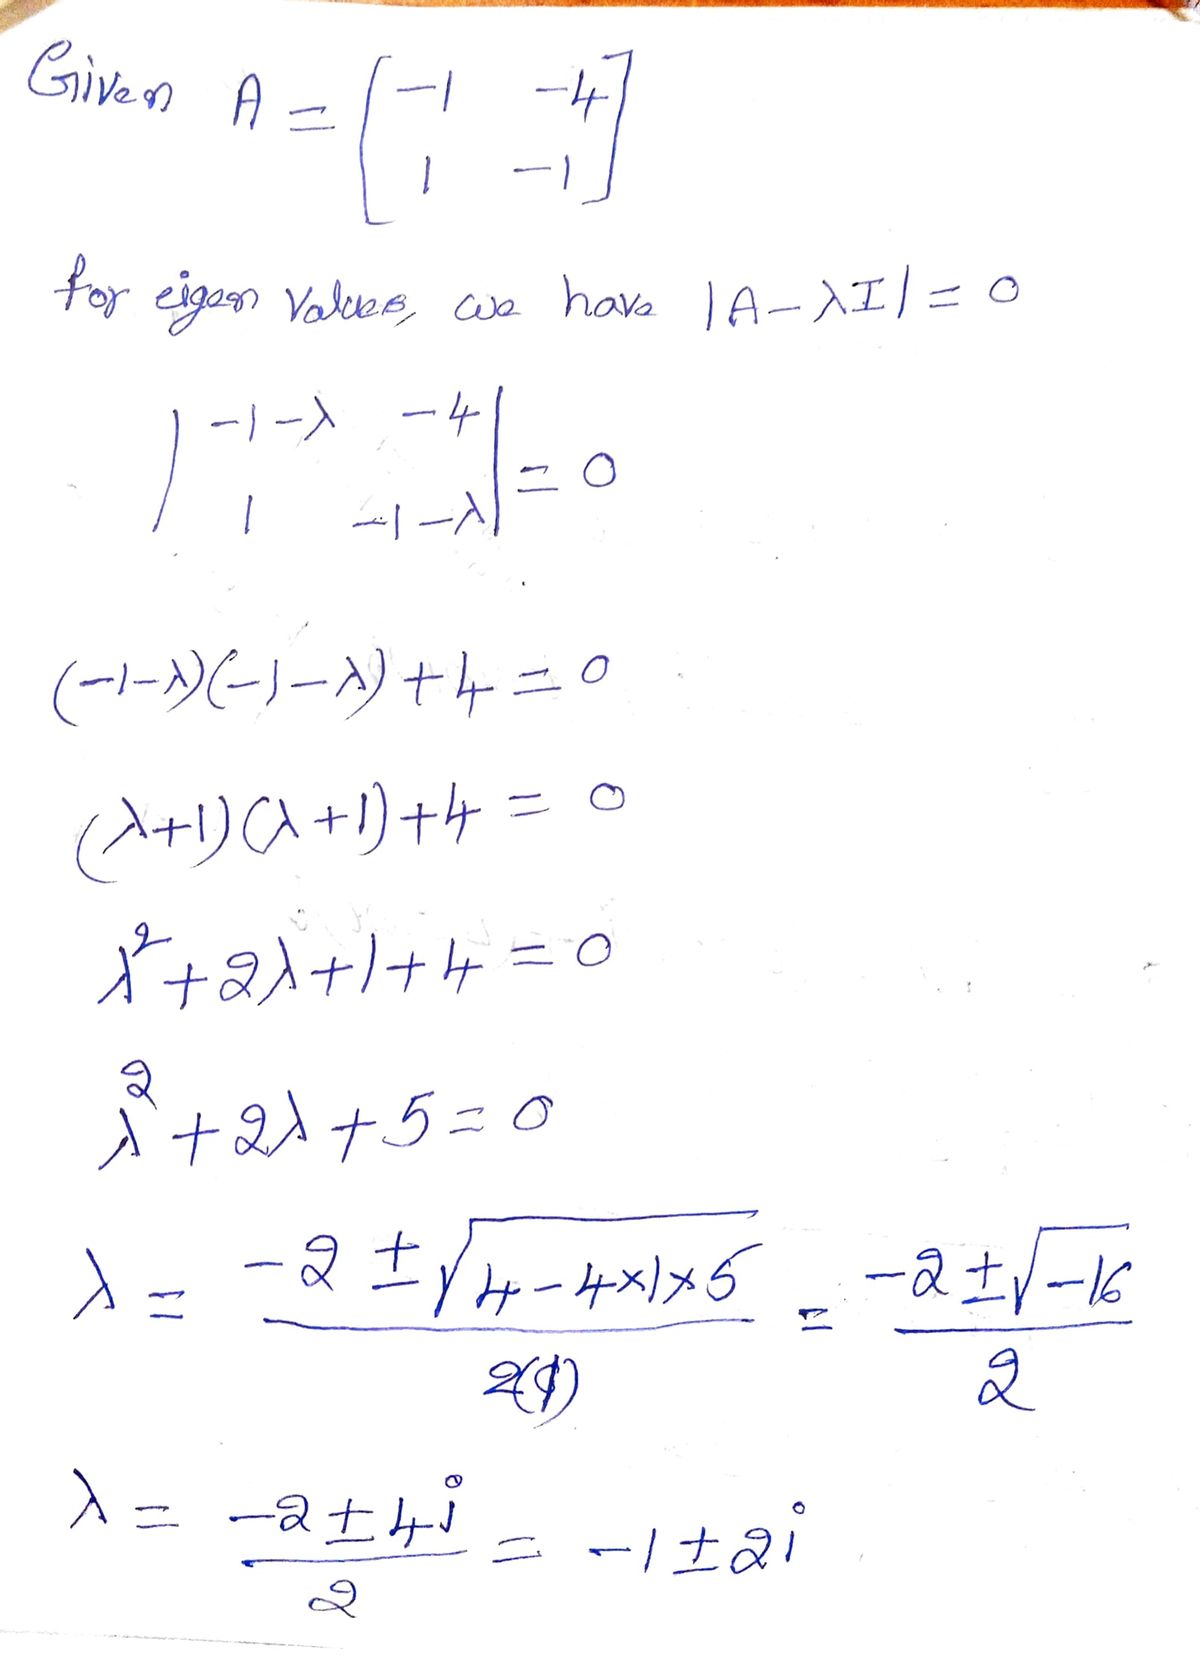 Given A = [ -1 -4
1 -1 ]
for eigen values, we have |A-λI| = 0
| -1-λ -4
1 -1-λ | = 0
(-1-λ)(-1-λ)+4 = 0
(λ+1)(λ+1)+4 = 0
λ²+2λ+1+4 = 0
λ²+2λ+5 = 0
λ = (-2 ± √(4-4×1×5)) / 2(1) = (-2 ± √-16) / 2
λ = (-2 ± 4i) / 2 = -1 ± 2i